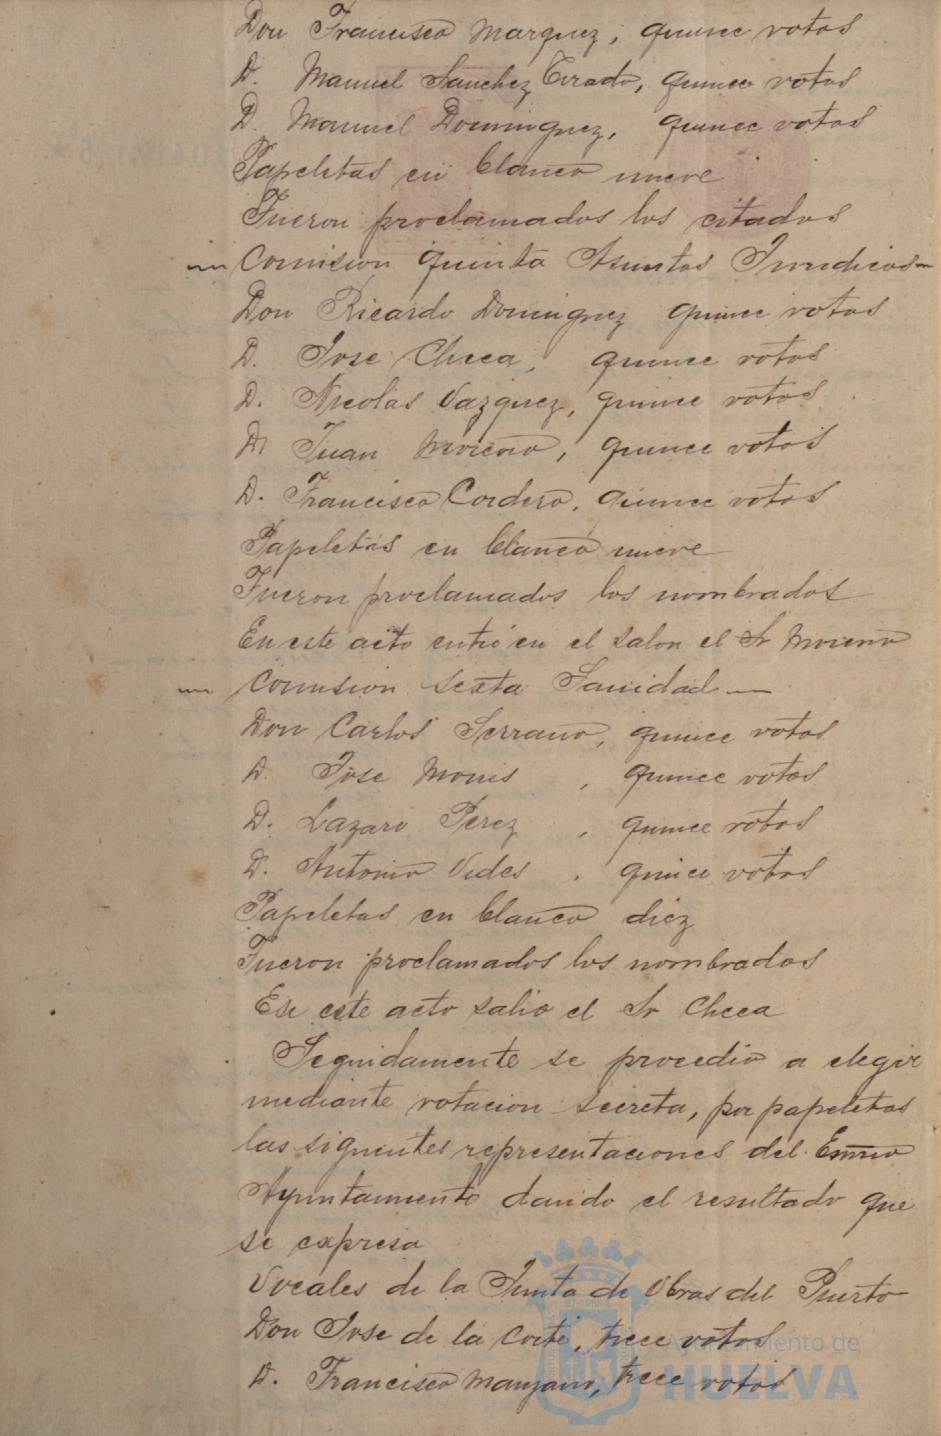 Don Francisco Marquez, quince votos
D. Manuel Sanchez Tirado, quince votos
D. Manuel Dominguez, quince votos
Papeletas en blanco nueve
Fueron proclamados los citados
Comision quinta Asuntos Juridicos
Don Ricardo Dominguez quince votos
D. Jose Checa, quince votos
D. Nicolás Vazquez, quince votos
D. Juan Moreno, quince votos
D. Francisco Cordero, quince votos
Papeletas en blanco nueve
Fueron proclamados los nombrados
En este acto entró en el salon el Sr Moreno
Comision sexta Sanidad
Don Carlos Serrano, quince votos
D. Jose Monis, quince votos
D. Lazaro Perez, quince votos
D. Antonio Vides, quince votos
Papeletas en blanco diez
Fueron proclamados los nombrados
En este acto salio el Sr Checa
Seguidamente se procedio a elegir
mediante votacion secreta, por papeletas
las siguientes representaciones del Exmo
Ayuntamiento dando el resultado que
se expresa
Vocales de la Junta de Obras del Puerto
Don Jose de la Corte, trece votos
D. Francisco Manzano, trece votos
Ayuntamiento de
HUELVA